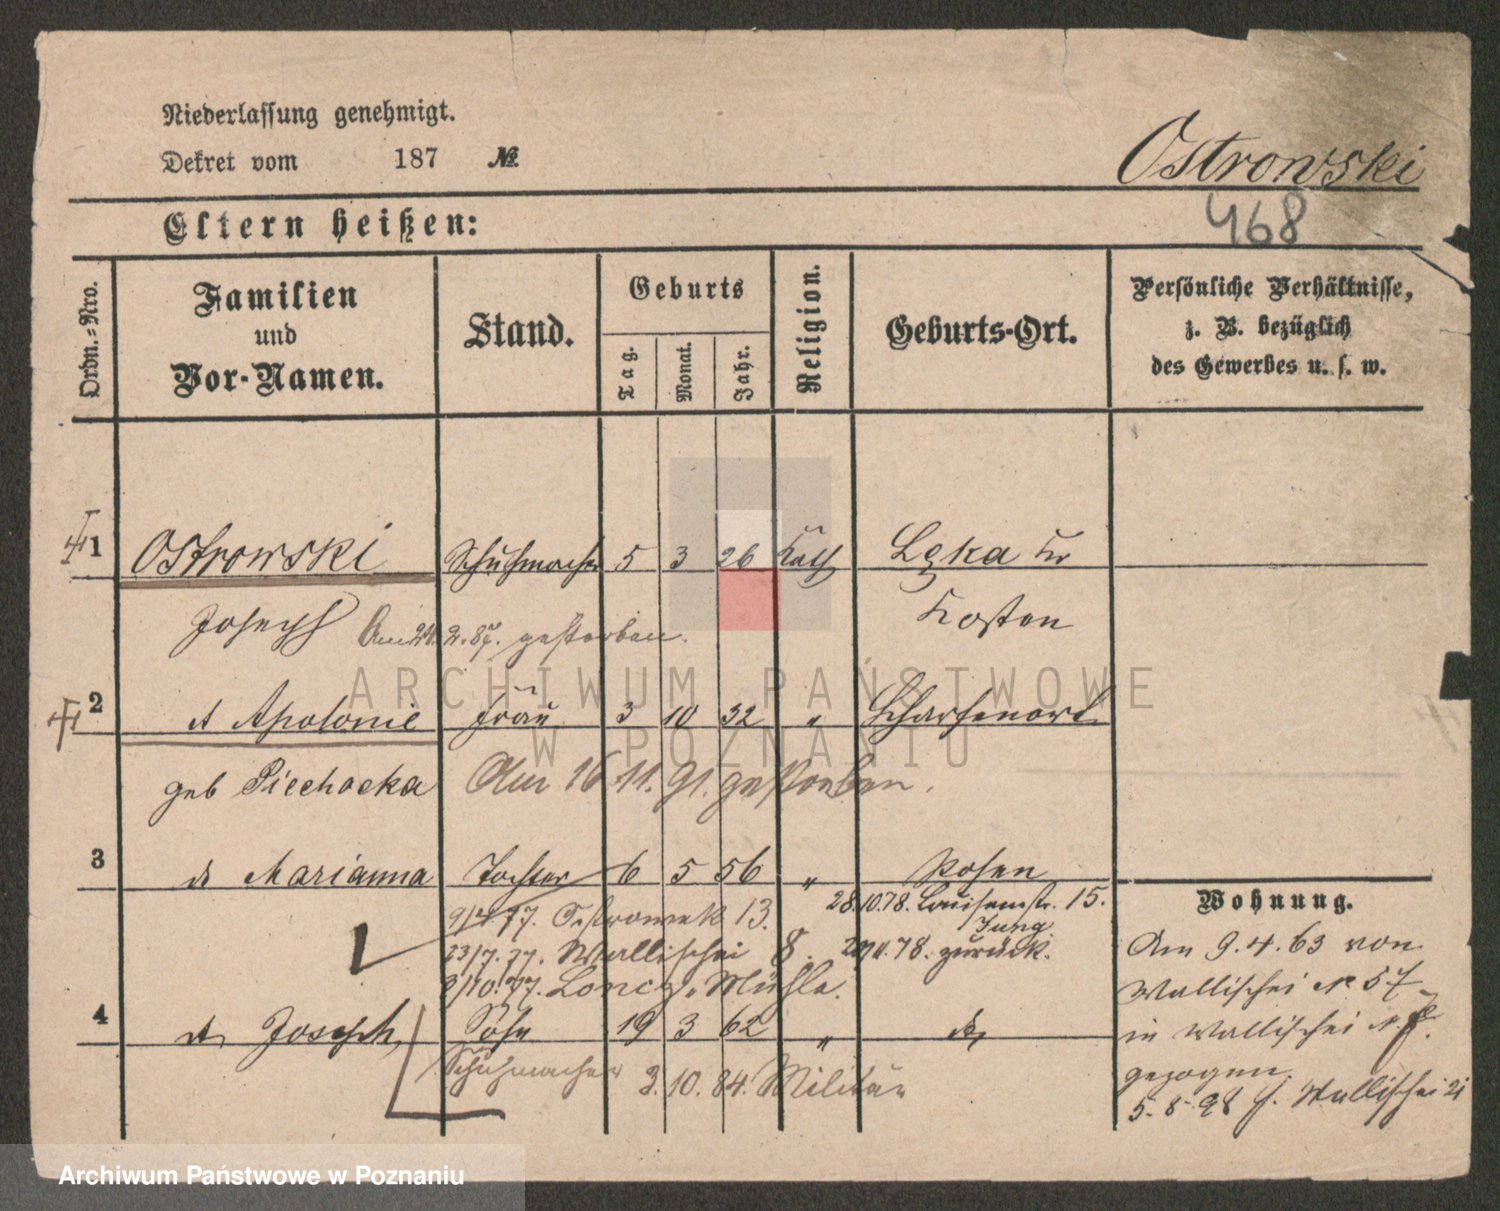 Niederlassung genehmigt.
Dekret vom 187 №
Ostrowski
468
Eltern heißen:
Ordn.-Nro.
Familien
und
Vor-Namen.
Stand.
Geburts
Tag.
Monat.
Jahr.
Religion.
Geburts-Ort.
Persönliche Verhältnisse,
z. B. bezüglich
des Gewerbes u. s. w.
1 Ostrowski Schuhmacher 5 3 26 Kath Lęka Kr
Joseph Am 2. 87. gestorben. Kosten
2 Apolonie Frau 3 10 32 " Scharfenort
geb Piechocka Am 16 11. 91. gestorben.
3 Marianna Tochter 6 5 56 " Posen
Wohnung.
9/4 77. Ostrowek 13. 28.10.78. Louisenstr. 15.
Jung
23/7. 77. Wallischei 8. 78. zurück.
3/10. 77. Loncz. Mühle.
Am 9. 4. 63 von
Wallischei № 57
in Wallischei №
gezogen.
5. 8 98 Wallischei 21
4 Joseph, Sohn 19 3 62 "
Schuhmacher 3. 10. 84. Militär
ARCHIWUM PAŃSTWOWE
W POZNANIU
Archiwum Państwowe w Poznaniu